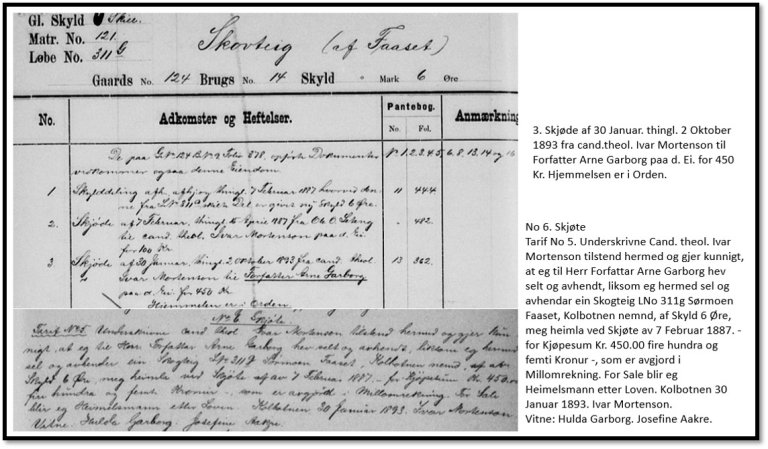 Gl. Skyld 6 Skill.
Matr. No. 121.
Løbe No. 311 G
Skovteig (af Faaset)
Gaards No. 124 Brugs No. 14 Skyld " Mark 6 Øre
No.
Adkomster og Heftelser.
Pantebog.
No. Fol.
Anmærkning
De paa G.No 124 B.No 9 Folio 878 opførte Dokumenter No 1.2.3.4.5.6.8.13.14 og 16
vedkommer ogsaa denne Eiendom.
1 Skylddeling afh. thingl. 7 Februar 1887 hvorved den- 11 444
ne fra LNo 311 a Del er givet ny Skyld 6 Øre.
2. Skjøde af 7 Februar, thingl. April 1887 fra O. O. - 482.
til cand. theol. Ivar Mortenson paa d. Ei.
for 100 Kr.
3 Skjøde af 30 Januar, thingl. 2 October 1893 fra cand. theol 13 362.
Ivar Mortenson til Forfatter Arne Garborg
paa d. Ei. for 450 Kr.
Hjemmelen er i Orden.
No 6. Skjøte.
Tarif No 5. Underskrivne Cand. theol. Ivar Mortenson tilstend hermed og gjer kun-
nigt, at eg til Herr Forfatter Arne Garborg hev selt og avhendt, liksom eg hermed
sel og avhendar ein Skogteig LNo 311 g Sørmoen Faaset, Kolbotnen nemnd, af
Skyld 6 Øre, meg heimla ved Skjøte af 7 Februar 1887. - for Kjøpesum Kr. 450.00
fire hundra og femti Kronur -, som er avgjord i Millomrekning. For Sale
blir eg Heimelsmann etter Loven. Kolbotnen 30 Januar 1893. Ivar Mortenson.
Vitne: Hulda Garborg. Josefine Aakre.
3. Skjøde af 30 Januar. thingl. 2 Oktober
1893 fra cand.theol. Ivar Mortenson til
Forfatter Arne Garborg paa d. Ei. for 450
Kr. Hjemmelsen er i Orden.
No 6. Skjøte
Tarif No 5. Underskrivne Cand. theol. Ivar
Mortenson tilstend hermed og gjer kunnigt,
at eg til Herr Forfattar Arne Garborg hev
selt og avhendt, liksom eg hermed sel og
avhendar ein Skogteig LNo 311g Sørmoen
Faaset, Kolbotnen nemnd, af Skyld 6 Øre,
meg heimla ved Skjøte av 7 Februar 1887. -
for Kjøpesum Kr. 450.00 fire hundra og
femti Kronur -, som er avgjord i
Millomrekning. For Sale blir eg
Heimelsmann etter Loven. Kolbotnen 30
Januar 1893. Ivar Mortenson.
Vitne: Hulda Garborg. Josefine Aakre.